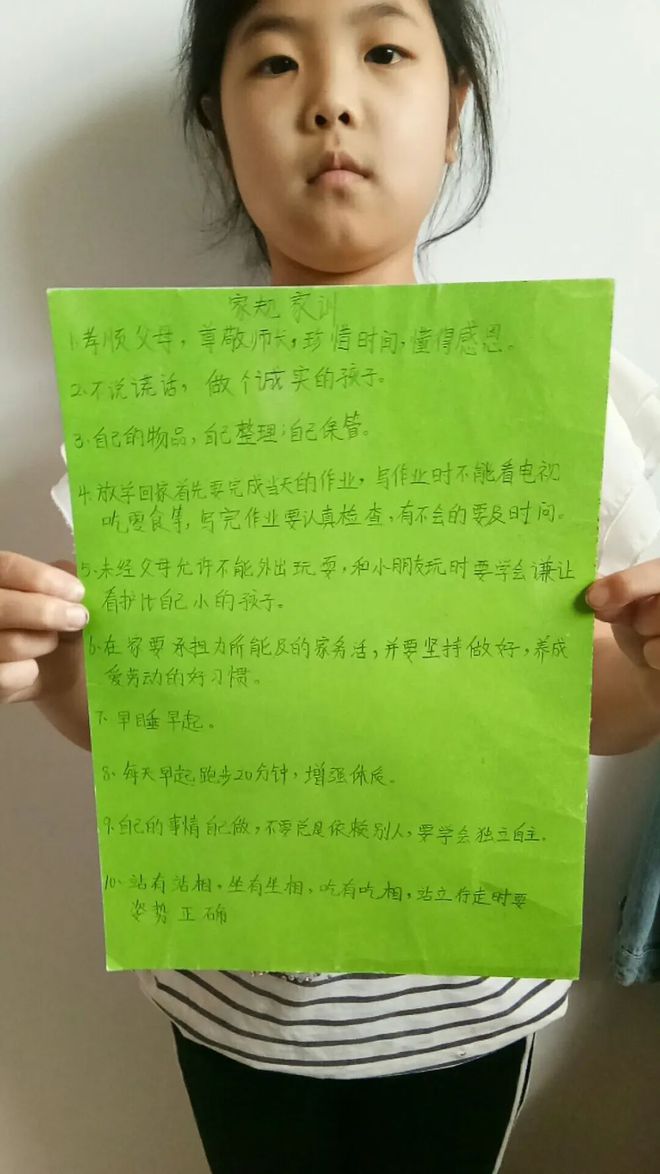 家规家训
1.孝顺父母，尊敬师长，珍惜时间，懂得感恩。
2.不说谎话，做个诚实的孩子。
3.自己的物品，自己整理；自己保管。
4.放学回家首先要完成当天的作业，写作业时不能看电视
吃零食等，写完作业要认真检查，有不会的要及时问。
5.未经父母允许不能外出玩耍，和小朋友玩时要学会谦让
看护比自己小的孩子。
6.在家要承担力所能及的家务活，并要坚持做好，养成
爱劳动的好习惯。
7.早睡早起。
8.每天早起跑步20分钟，增强体质。
9.自己的事情自己做，不要总是依赖别人，要学会独立自主.
10、站有站相，坐有坐相，吃有吃相，站立行走时要
姿势正确